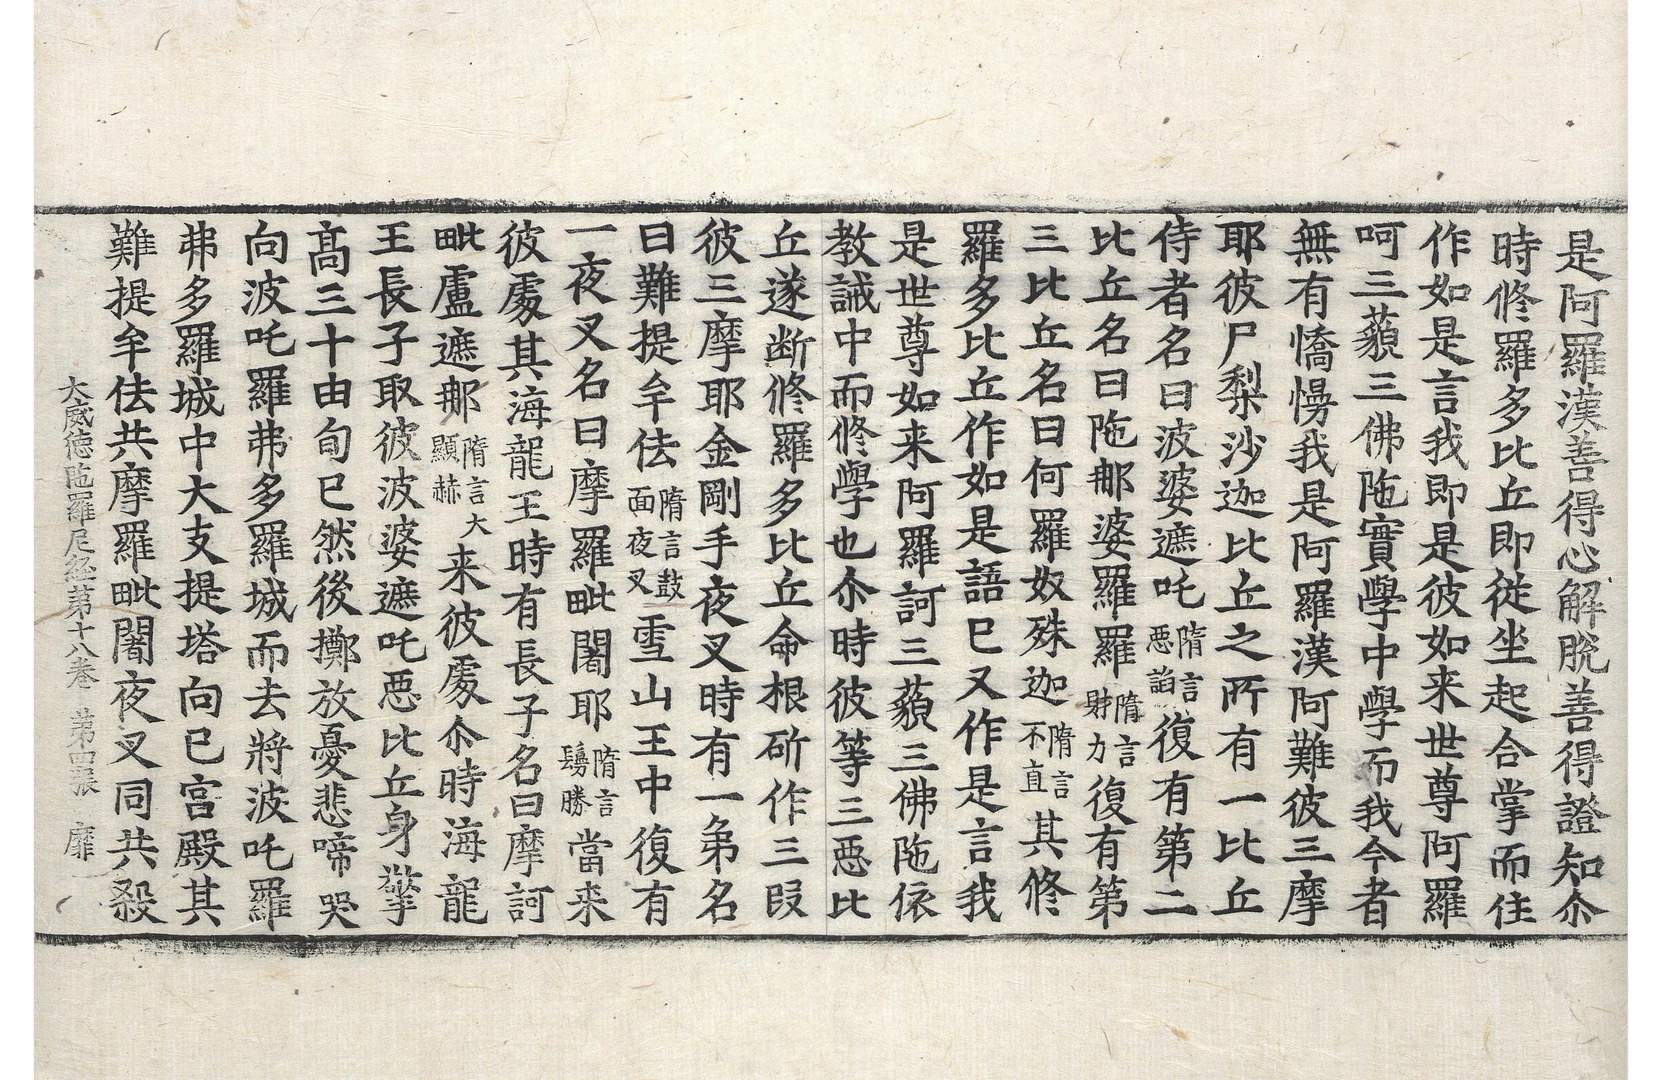 是阿羅漢善得心解脫善得證知尒
時修羅多比丘即從坐起合掌而住
作如是言我即是彼如来世尊阿羅
呵三藐三佛陁實學中學而我今者
無有憍慢我是阿羅漢阿難彼三摩
耶彼尸梨沙迦比丘之所有一比丘
侍者名曰波婆遮吒隋言惡諂復有第二
比丘名曰陁那婆羅羅隋言財力復有第
三比丘名曰何羅奴殊迦隋言不直其修
羅多比丘作如是語已又作是言我
是世尊如来阿羅訶三藐三佛陁依
教誡中而修學也尒時彼等三惡比
丘遂断修羅多比丘命根斫作三段
彼三摩耶金剛手夜叉時有一弟名
曰難提牟佉隋言鼓面夜叉雪山王中復有
一夜叉名曰摩羅毗闍耶隋言鬘勝當来
彼處其海龍王時有長子名曰摩訶
毗盧遮那隋言大顯赫来彼處尒時海龍
王長子取彼波婆遮吒惡比丘身擎
高三十由旬已然後擲放憂悲啼哭
向波吒羅弗多羅城而去將波吒羅
弗多羅城中大支提塔向已宮殿其
難提牟佉共摩羅毗闍夜叉同共殺
大威德陁羅尼経第十八卷 第四張 靡